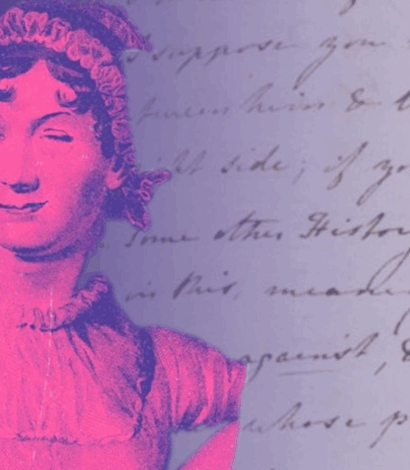 suppose you
him & t
side; if yo
Some other History
in this, mean
against, &
whose p